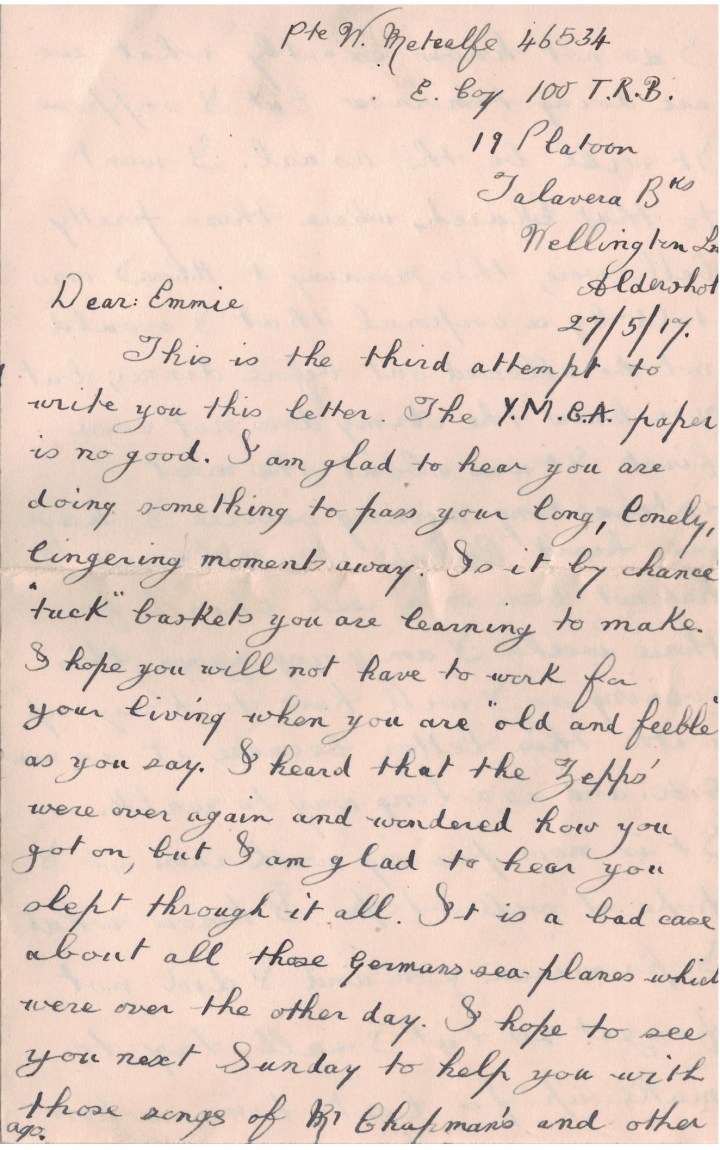 Pte W. Metcalfe 46534
E. Coy 100 T.R.B.
19 Platoon
Talavera Bks
Wellington Ln
Aldershot
Dear: Emmie
27/5/17.
This is the third attempt to
write you this letter. The Y.M.C.A. paper
is no good. I am glad to hear you are
doing something to pass your long, lonely,
lingering moments away. Is it by chance
"tuck" baskets you are learning to make.
I hope you will not have to work for
your living when you are "old and feeble"
as you say. I heard that the Zepps'
were over again and wondered how you
got on, but I am glad to hear you
slept through it all. It is a bad case
about all those Germans sea-planes which
were over the other day. I hope to see
you next Sunday to help you with
those songs of Mr Chapman's and other
ago.